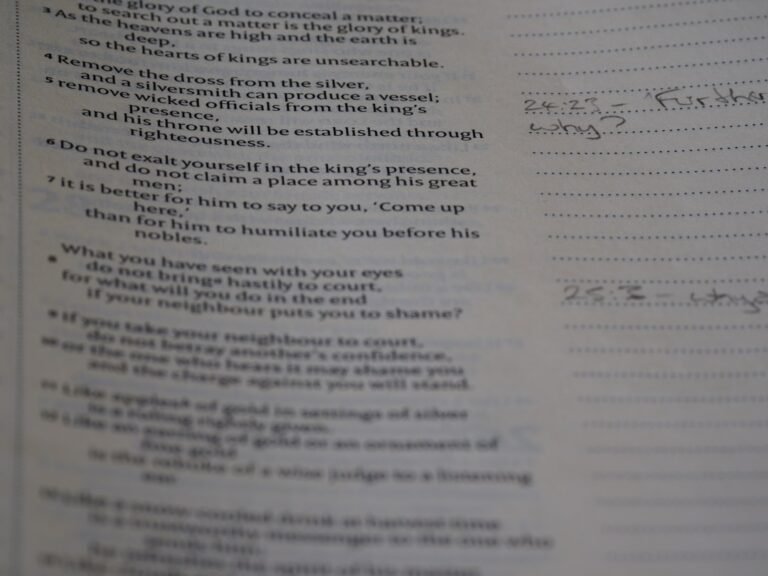 the glory of God to conceal a matter;
to search out a matter is the glory of kings.
3 As the heavens are high and the earth is
deep,
so the hearts of kings are unsearchable.
4 Remove the dross from the silver,
and a silversmith can produce a vessel;
5 remove wicked officials from the king's
presence,
and his throne will be established through
righteousness.
6 Do not exalt yourself in the king's presence,
and do not claim a place among his great
men;
7 it is better for him to say to you, 'Come up
here,'
than for him to humiliate you before his
nobles.
What you have seen with your eyes
8 do not bring hastily to court,
for what will you do in the end
if your neighbour puts you to shame?
9 If you take your neighbour to court,
do not betray another's confidence,
10 or the one who hears it may shame you
and the charge against you will stand.
11 Like apples of gold in settings of silver
is a ruling rightly given.
12 Like an earring of gold or an ornament of
fine gold
is the rebuke of a wise judge to a listening
ear.
24:23 –
why?